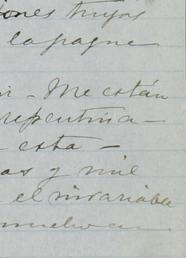 ones tuyos
la pague
Me están
repentina –
esta –
as y mil
el invariable